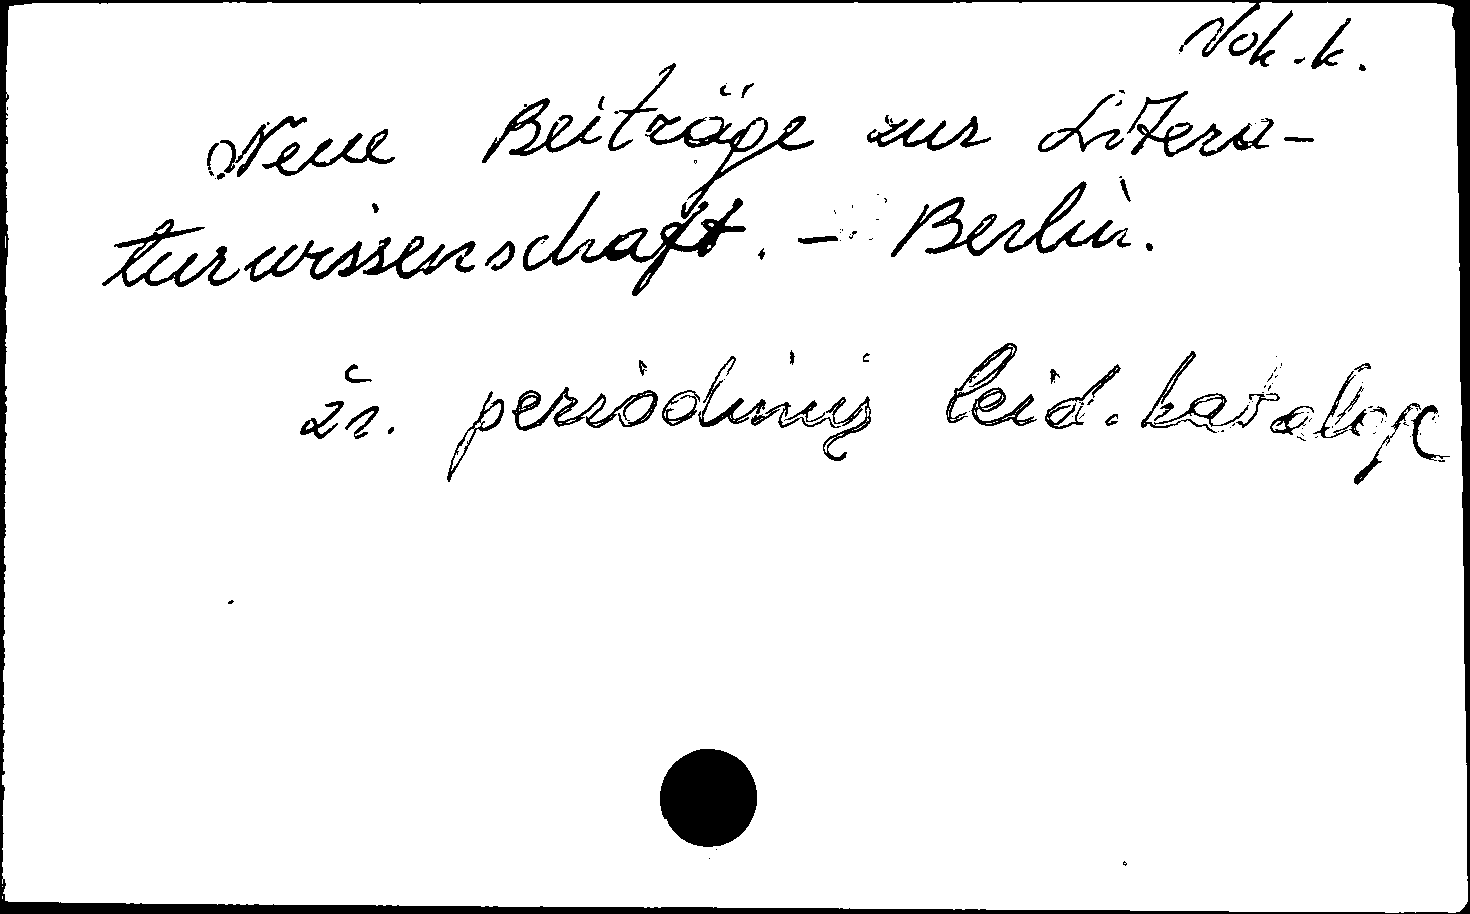 Vok.k.
Neue Beiträge zur Litera-
turwissenschaft. - Berlin.
žr. periodinių leid. kataloge